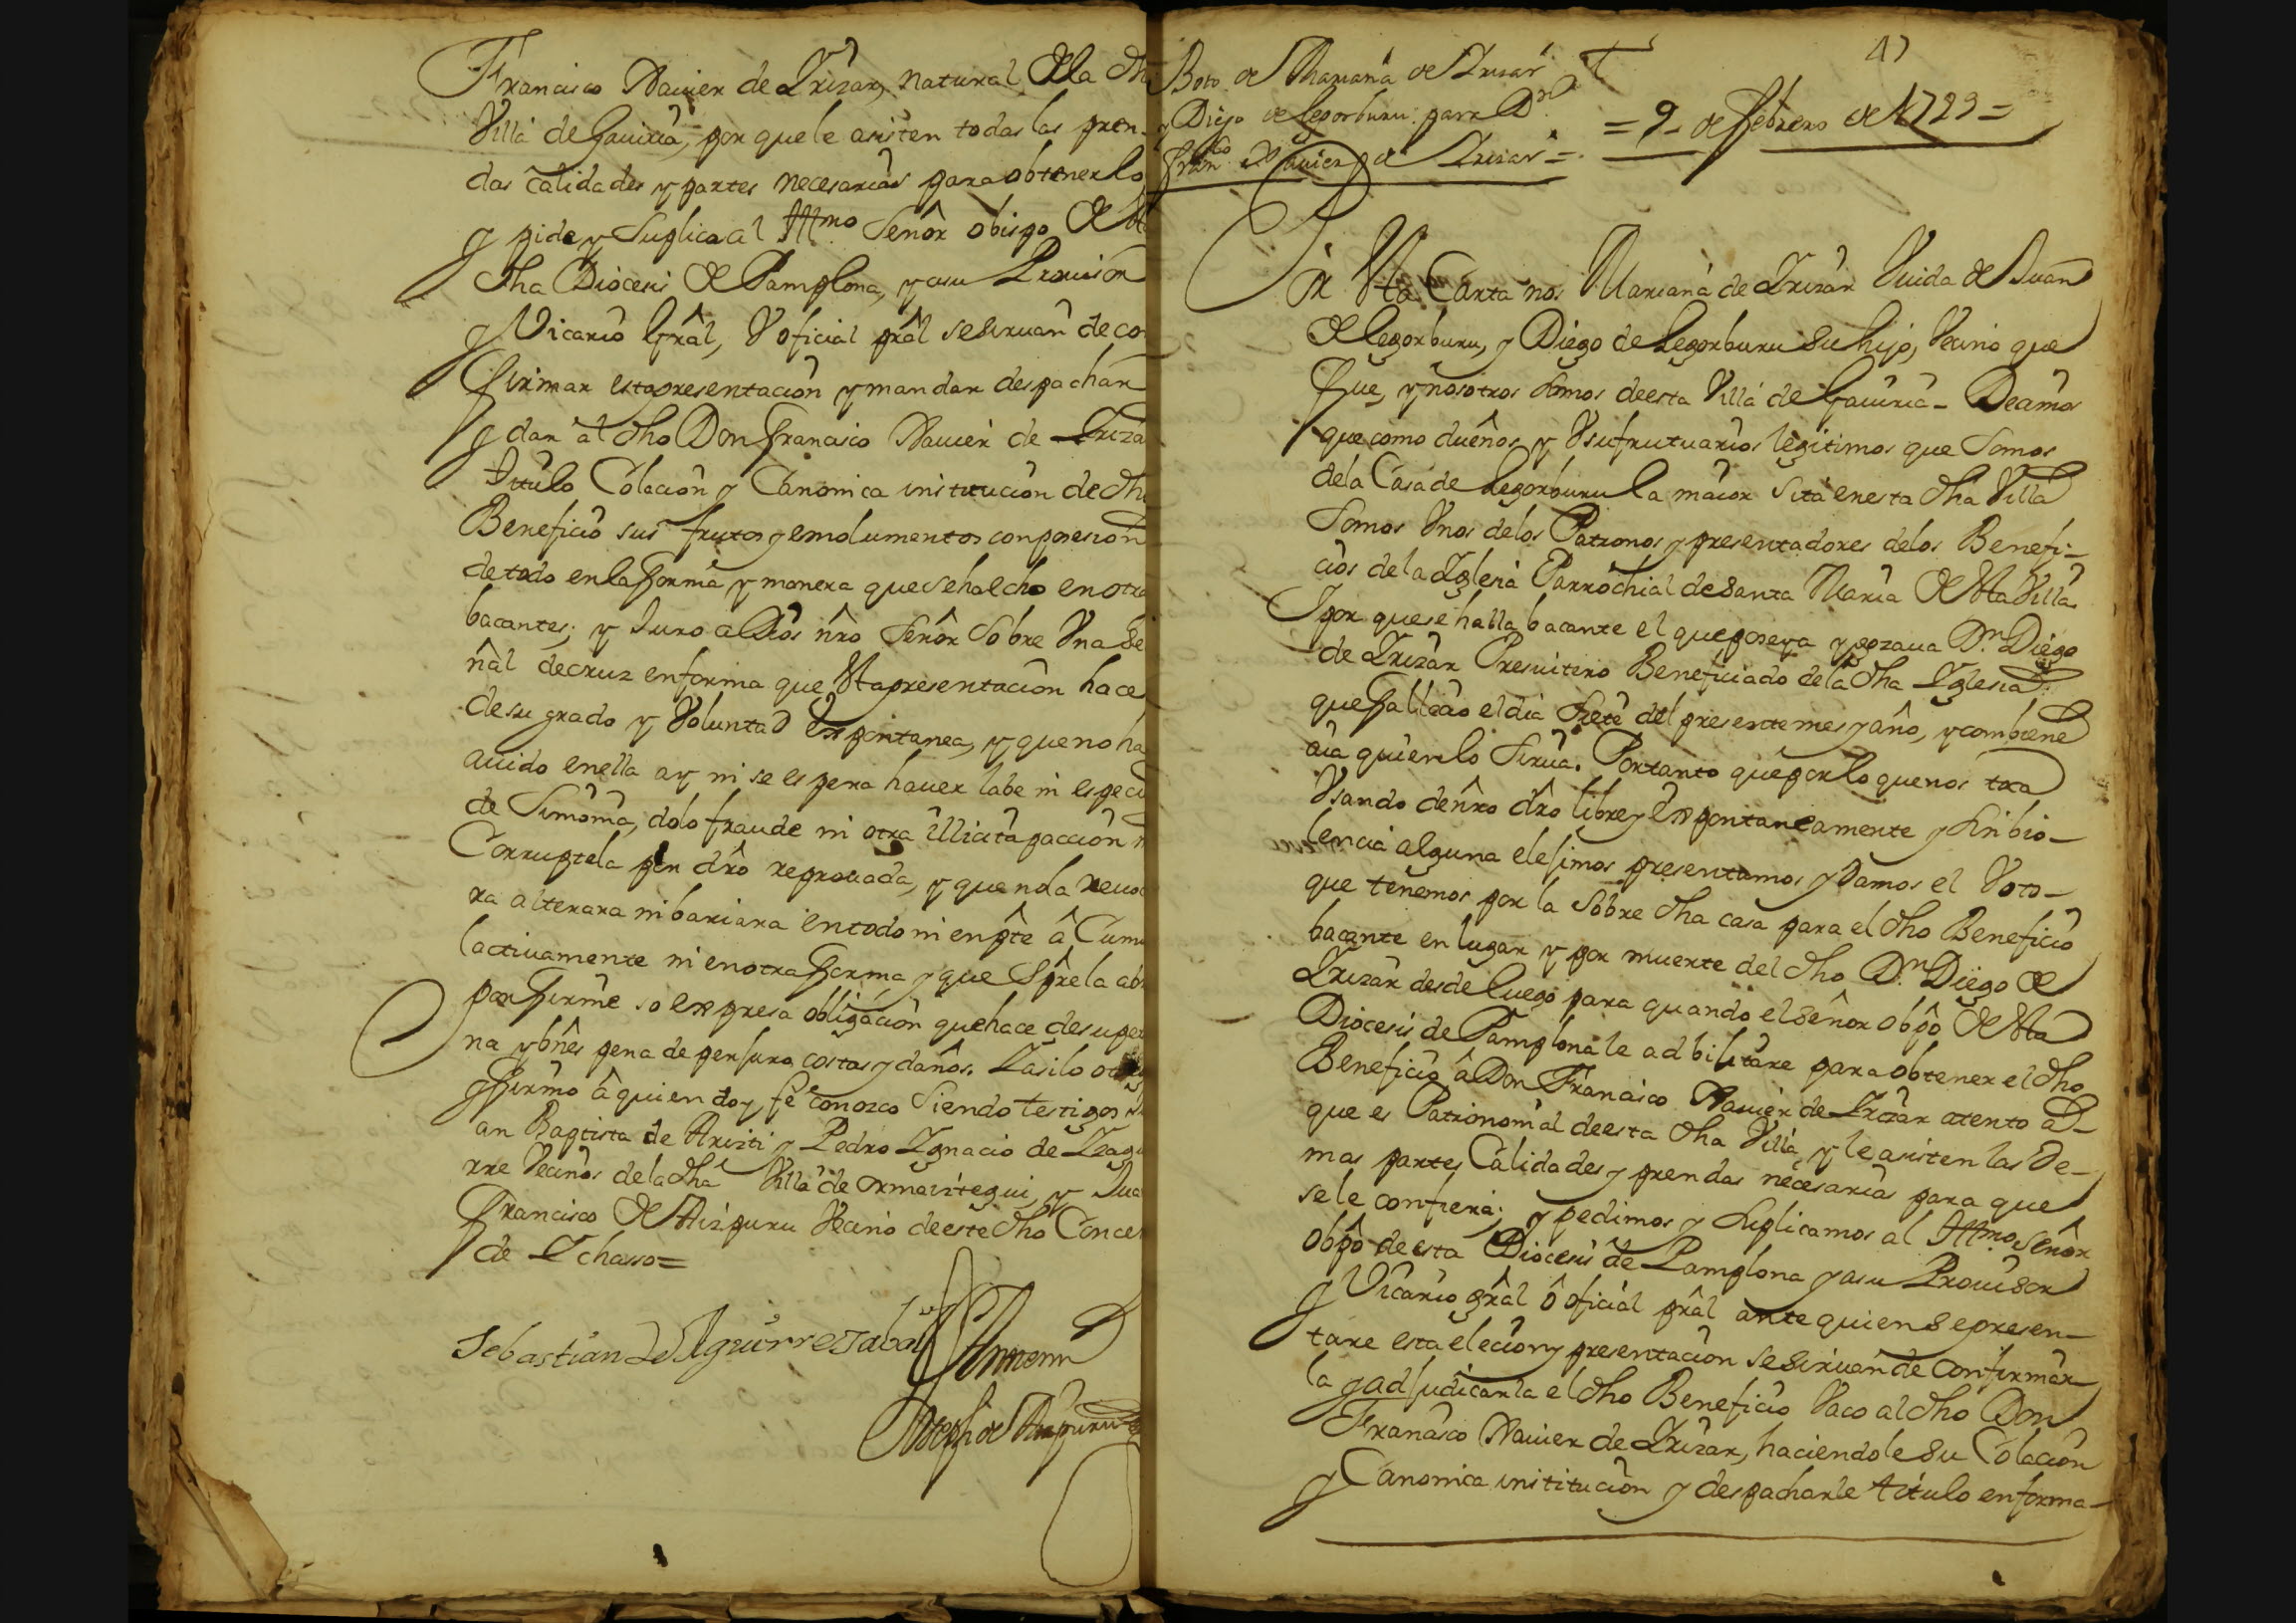 Francisco Xauier de Yrizar, natural de la dha
Villa de Gauiria, por que le asisten todas las pren-
das calidades y partes necesarias para obtenerlo
y pide y suplica al Illmo Señor obispo de esta
dha Diocesis de Pamplona, y a su Prouisor
y Vicario Gral, V oficial pral se siruan de con
firmar esta presentacion y mandar despachar
y dar al dho Don Francisco Xauier de Yriza
titulo Colacion y Canonica institucion de dho
Beneficio sus frutos y emolumentos con posesion
de todo en la forma y manera que se ha echo en otra
bacantes; y Juro a Dios nro Señor Sobre Vna se
ñal de cruz en forma que esta presentacion hace
de su grado y Voluntad expontanea, y que no ha
auido en ella ay ni se espera hauer labe ni especie
de Simonia, dolo fraude ni otra illicita paccion n
Corruptela por dro reprouada, y que no la reuoca
ra alterara ni bariara en todo ni en pte â Cumu
lactiuamente ni en otra forma y que spre la abra
por firme so expresa obligacion que hace de su perso
na y bnes pena de perjuro costas y daños. Y asi lo oto
y firmo â quien doy fe conozco siendo testigos Ju
an Baptista de Ariztti y Pedro Ygnacio de Yzagui
rre Vecinos de la dha Villa de ormaiztegui, y Jua
Francisco de Aizpuru Vecino de este dho Concejo
de Ychasso=
Sebastian de Aguirre sabal
Antemi
Joseph de Aizpuru
Boto de Mariana de Yrizar
y Diego de Legorburu para Dn
Franco Xauier de Yrizar =
47
= 9 - de febrero de 1729 =
Por esta Carta nos Mariana de Yrizar Viuda de Juan
de Legorburu, y Diego de Legorburu su hijo, Vecino que
fue, y nosotros somos de esta Villa de Gauiria - Deamos
que como dueños, y Vsufrutuarios legitimos que Somos
de la Casa de Legorburu la maior sita en esta dha Villa
Somos Vnos de los Patronos y presentadores de los Benefi-
cios de la Yglesia Parrochial de Santa Maria de esta Villa
Y por que se halla bacante el que poseya y gozaua Dn Diego
de Yrizar Presuitero Beneficiado de la dha Yglesia
que fallecio el dia siete del presente mes y año, y combiene
aia quien lo sirua. Por tanto que por lo que nos toca
Vsando de nro dro libre y expontaneamente y sin bio-
lencia alguna elejimos presentamos y damos el Voto-
que tenemos por la sobre dha casa para el dho Beneficio
bacante en lugar y por muerte del dho Dn Diego de
Yrizar desde luego para quando el Señor obpo de esta
Diocesis de Pamplona le adbilitare para obtener el dho
Beneficio â Don Francisco Xauier de Yrizar atento a-
que es Patrimonial de esta dha Villa, y le asisten las de-
mas partes Calidades y prendas necesarias para que
se le confiera; y pedimos y suplicamos al Illmo Señor
obpo de esta Diocesis de Pamplona y a su Prouisor
y Vicario gral ô oficial pral ante quien se presen-
tare esta elecion y presentacion se siruan de confirmar
la y adjudicarla el dho Beneficio Vaco al dho Don
Francisco Xauier de Yrizar, haciendole su Colacion
y Canonica institucion y despacharle titulo en forma-